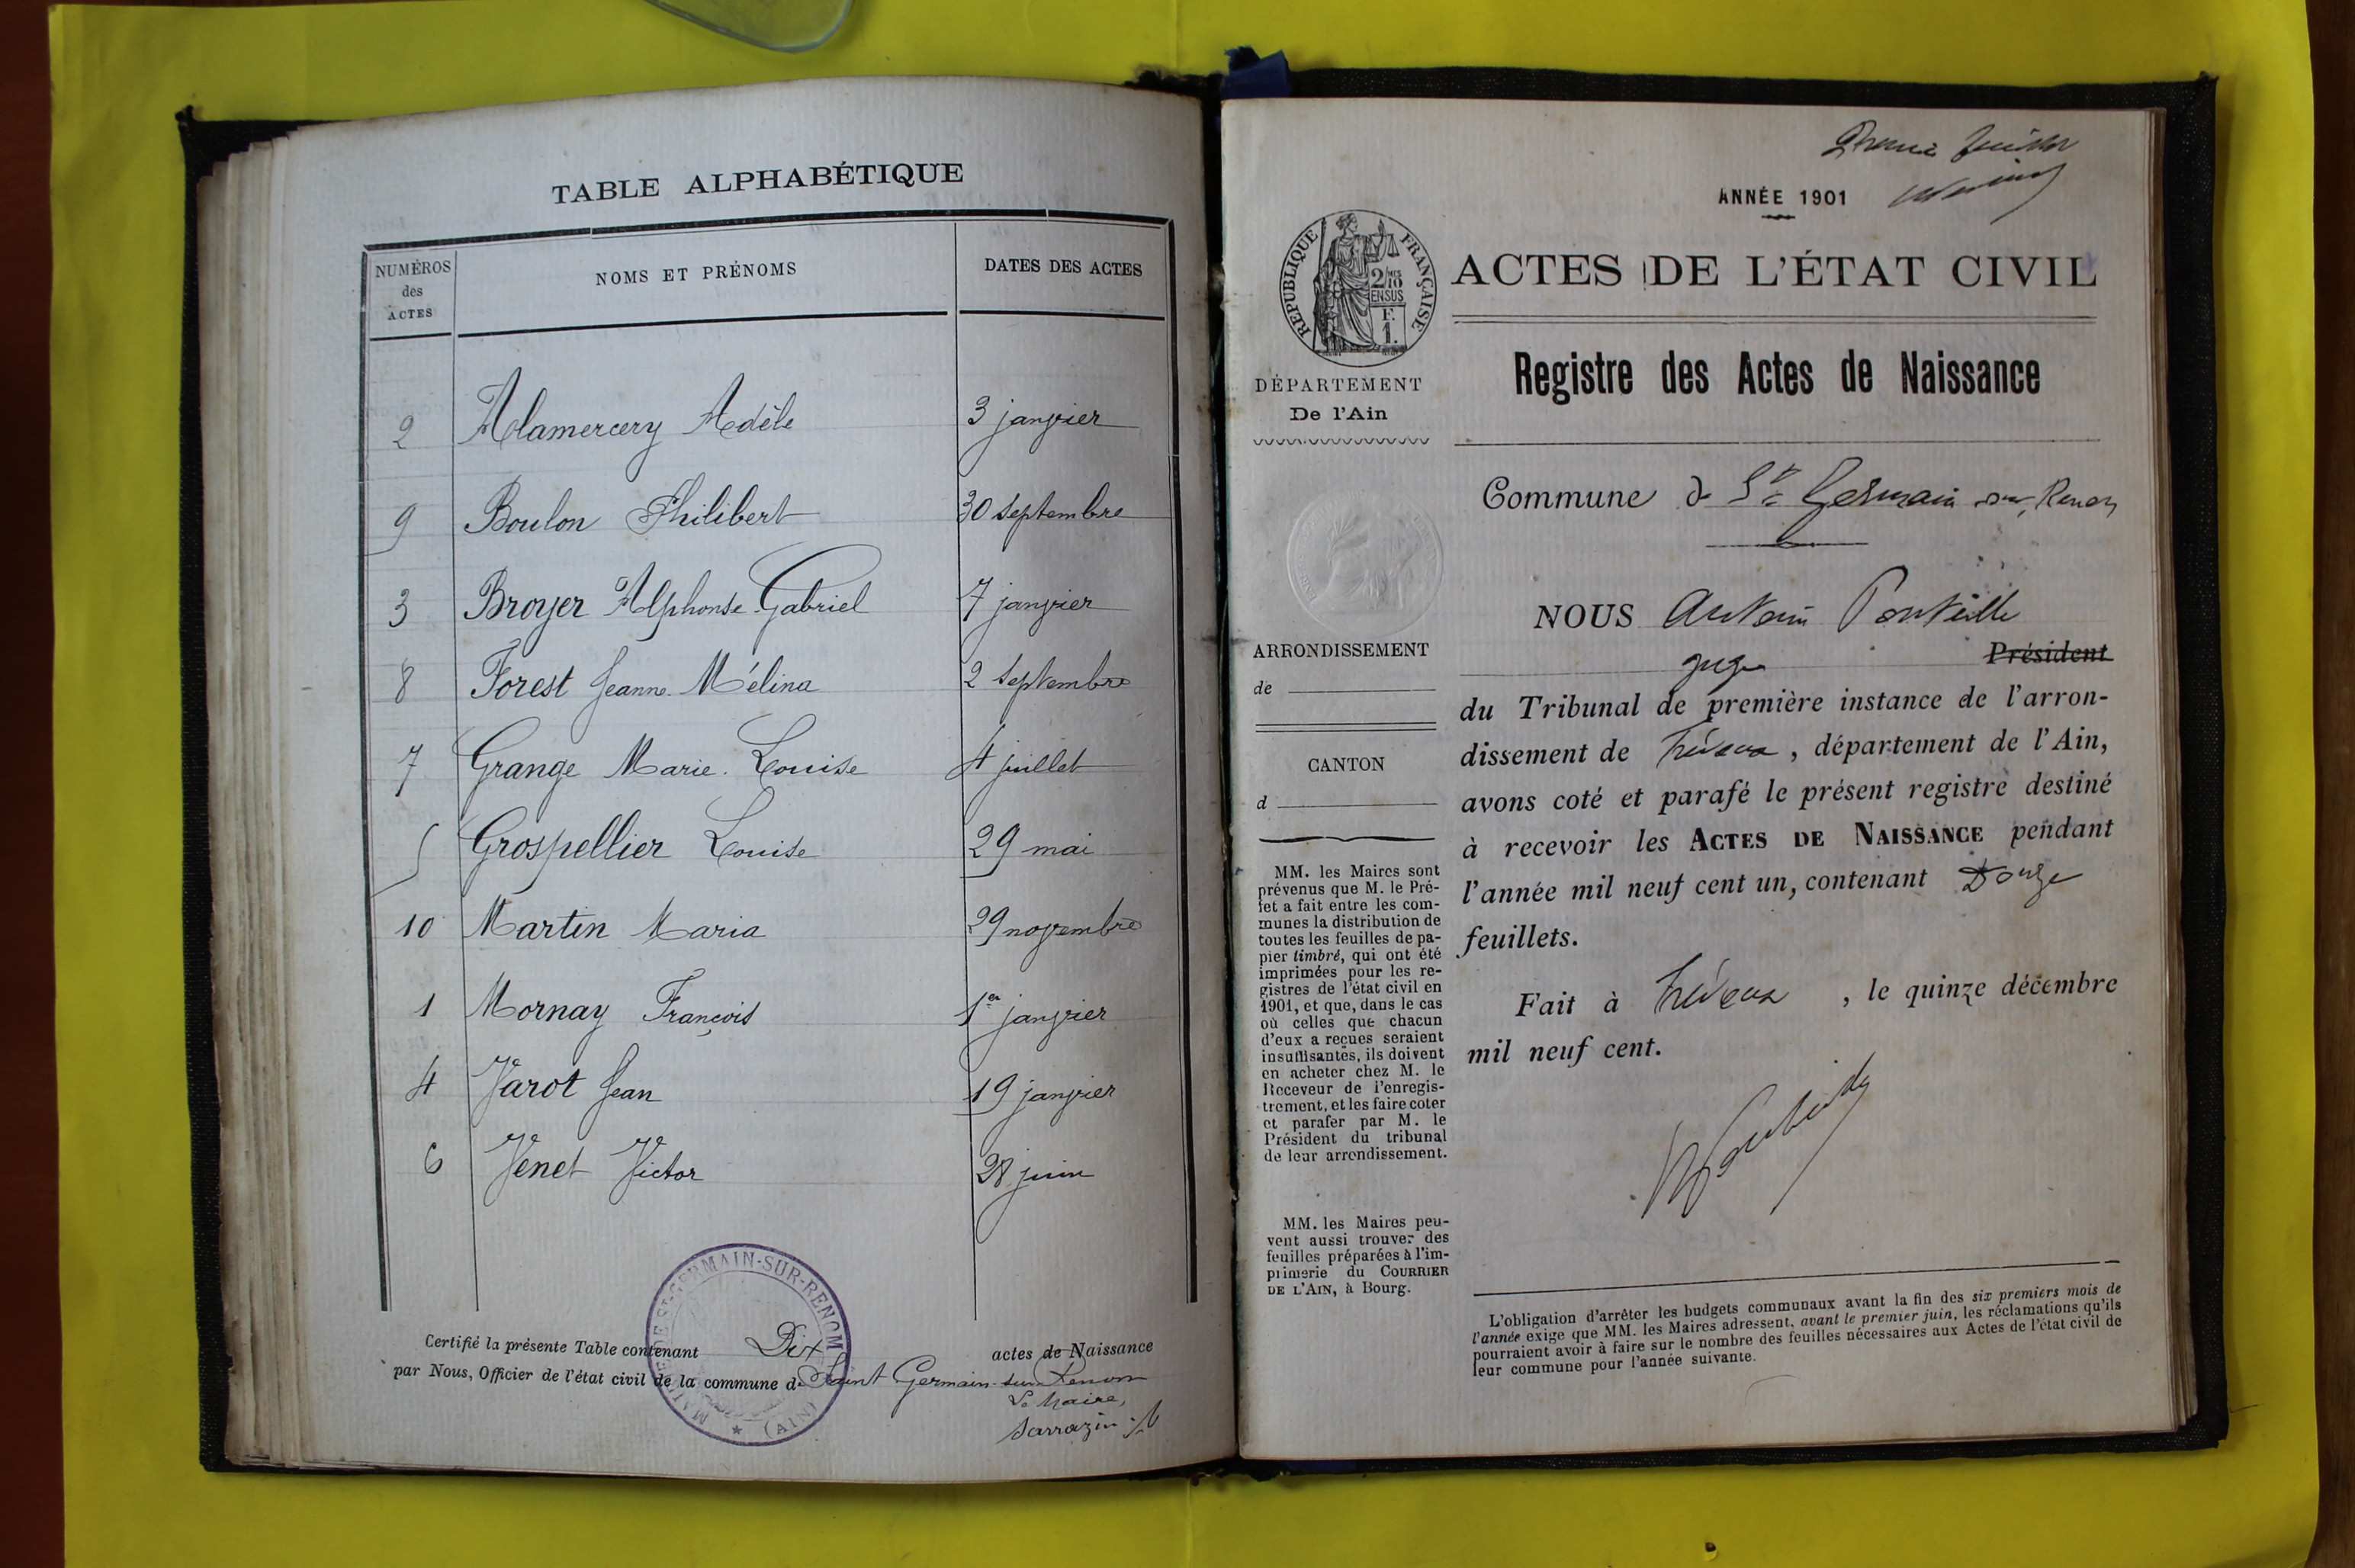 TABLE ALPHABÉTIQUE
NUMÉROS
des
ACTES
NOMS ET PRÉNOMS
DATES DES ACTES
2 Alamercery Adèle 3 janvier
9 Boulon Philibert 30 septembre
3 Broyer Alphonse Gabriel 7 janvier
8 Forest Jeanne Mélina 2 septembre
7 Grange Marie Louise 4 juillet
5 Grospellier Louise 29 mai
10 Martin Maria 29 novembre
1 Mornay François 1er janvier
4 Varot Jean 19 janvier
6 Venet Victor 28 juin
Certifié la présente Table contenant Dix actes de Naissance
par Nous, Officier de l'état civil de la commune de Saint Germain-sur-Renom
Le Maire,
Sarrazin
MAIRIE DE ST-GERMAIN-SUR-RENOM
(AIN)
Premier feuillet
ANNÉE 1901
RÉPUBLIQUE FRANÇAISE
2/10
EN SUS
F.
1.
ACTES DE L'ÉTAT CIVIL
Registre des Actes de Naissance
DÉPARTEMENT
De l'Ain
Commune de St Germain sur Renon
ARRONDISSEMENT
de
CANTON
d
MM. les Maires sont
prévenus que M. le Pré-
fet a fait entre les com-
munes la distribution de
toutes les feuilles de pa-
pier timbré, qui ont été
imprimées pour les re-
gistres de l'état civil en
1901, et que, dans le cas
où celles que chacun
d'eux a reçues seraient
insuffisantes, ils doivent
en acheter chez M. le
Receveur de l'enregis-
trement, et les faire coter
et parafer par M. le
Président du tribunal
de leur arrondissement.
MM. les Maires peu-
vent aussi trouver des
feuilles préparées à l'im-
primerie du COURRIER
DE L'AIN, à Bourg.
NOUS Antonin Ponteille
juge Président
du Tribunal de première instance de l'arron-
dissement de Trévoux, département de l'Ain,
avons coté et parafé le présent registre destiné
à recevoir les ACTES DE NAISSANCE pendant
l'année mil neuf cent un, contenant Douze
feuillets.
Fait à Trévoux, le quinze décembre
mil neuf cent.
L'obligation d'arrêter les budgets communaux avant la fin des six premiers mois de
l'année exige que MM. les Maires adressent, avant le premier juin, les réclamations qu'ils
pourraient avoir à faire sur le nombre des feuilles nécessaires aux Actes de l'état civil de
leur commune pour l'année suivante.